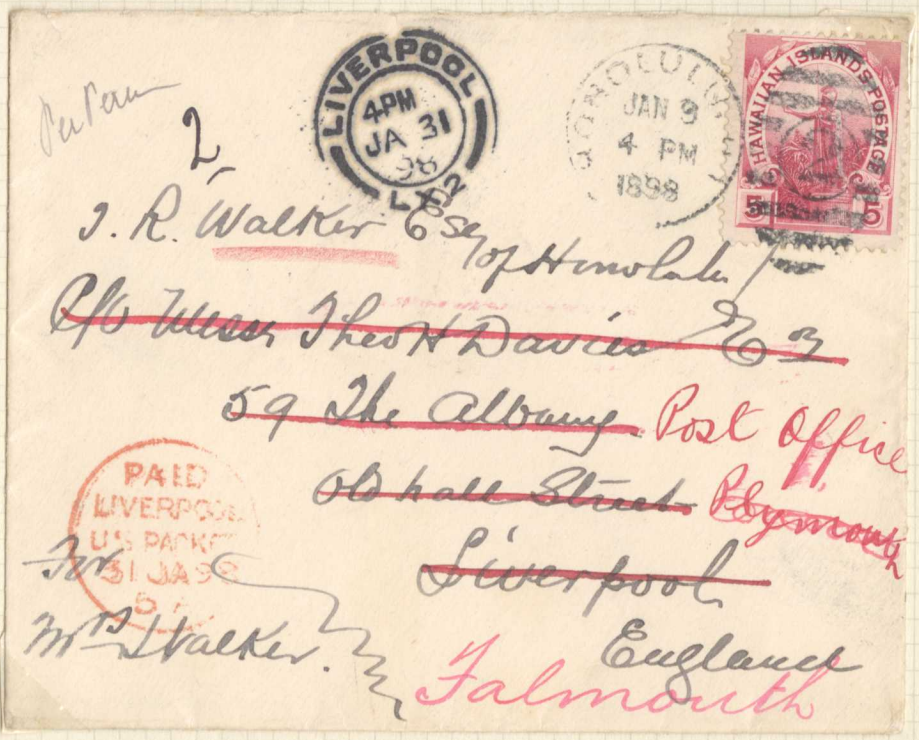 LIVERPOOL
4 PM
JA 31
98
HONOLULU
JAN 9
4 PM
1898
HAWAIIAN ISLANDS POSTAGE
5 5
2
J. R. Walker Esq
of Honolulu
C/O Messrs Theo H Davies & Co
59 The Albany Post Office
Old hall Street Plymouth
Liverpool
England
Falmouth
PAID
LIVERPOOL
U S PACKET
31 JA 98
For
Mrs Walker.